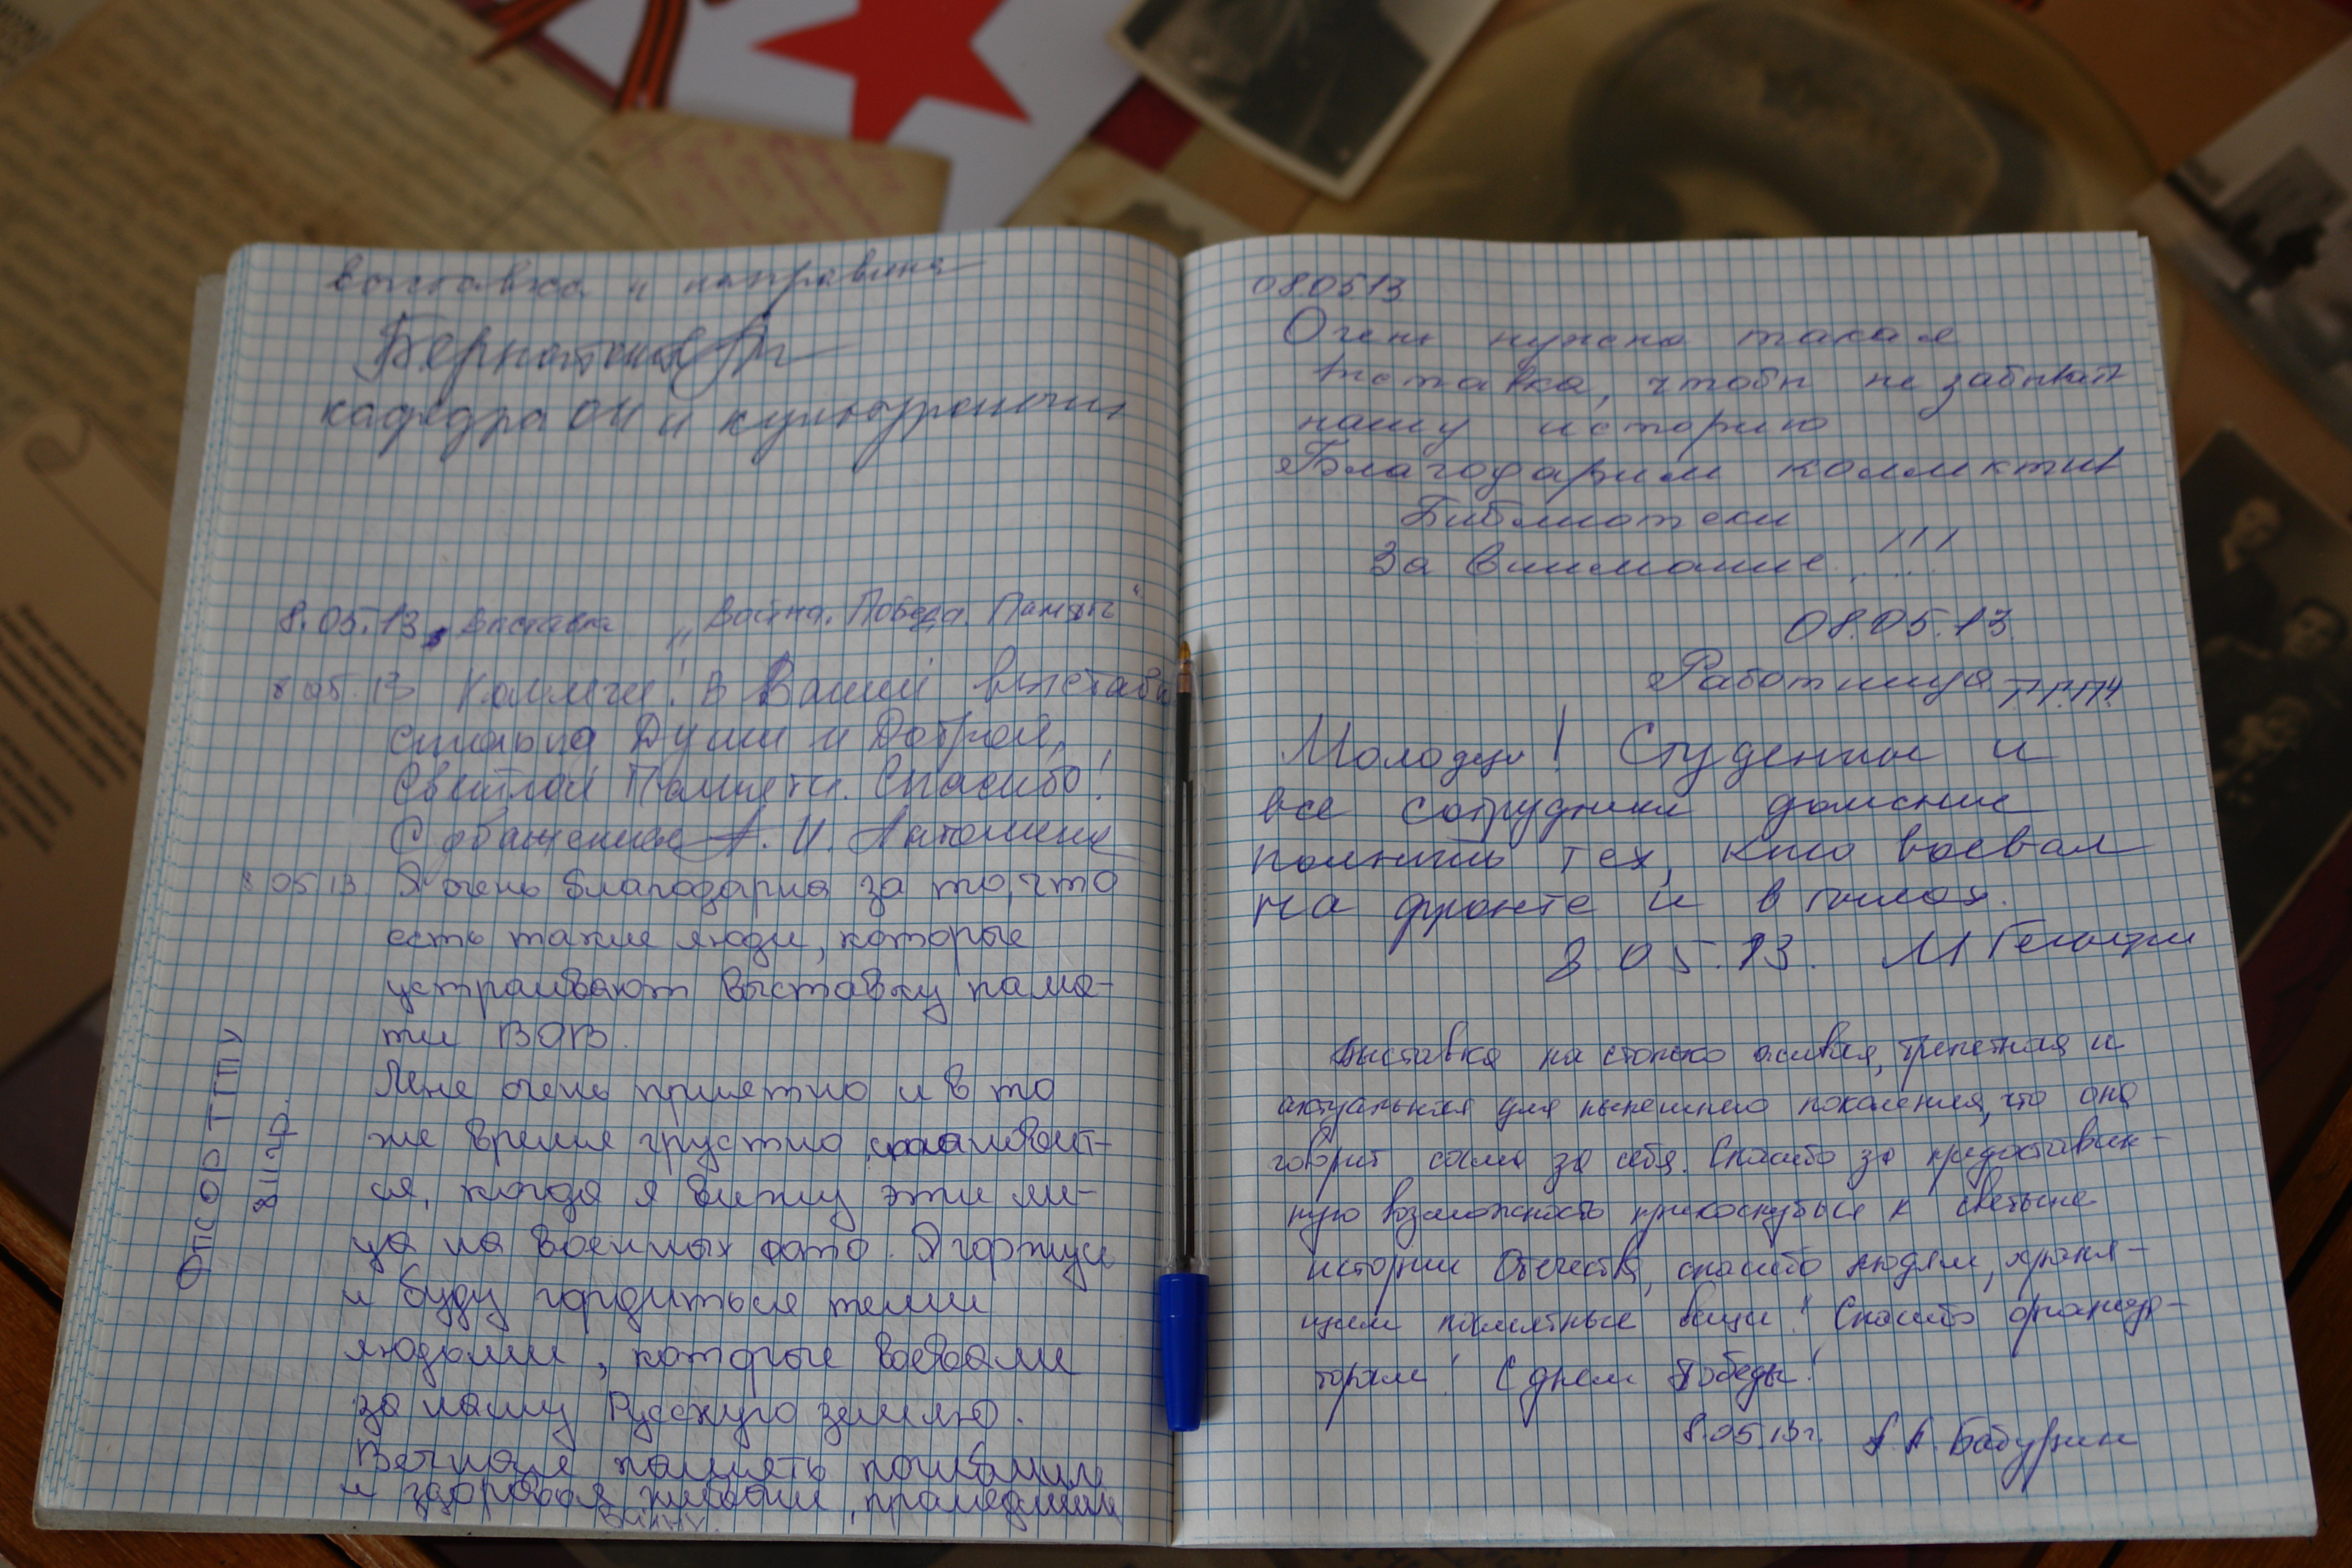 выставка и направила
кафедра ОИ и культурологии
8.05.13, выставка „Война. Победа. Память“
8.05.13 Коллеги! В Вашей выставке
столько Души и Доброй,
Светлой Памяти. Спасибо!
С обащением А. И.
8 05 13 Я очень благодарна за то, что
есть такие люди, которые
устраивают выставку памя-
ти ВОВ.
Мне очень приятно и в то
же время грустно становит-
ся, когда я вижу эти ли-
ца на военных фото. Я горжусь
и буду гордиться теми
людьми, которые воевали
за нашу Русскую землю.
Вечная память погибшим
и здоровья живым, прошедшим
войну.
ОПСОР ТГПУ
811 гр.
08.05 13
Очень нужна такая
выставка, чтобы не забывать
нашу историю
Благодарим коллектив
Библиотеки
За внимание!!!
08.05.13
Работница
Молодцы! Студенты и
все сотрудники должны
помнить тех, кто воевал
на фронте и в тылах.
8.05.13. М
Выставка на столько живая, трепетная и
актуальная для нынешнего поколения, что она
говорит сама за себя. Спасибо за предоставлен-
ную возможность прикоснуться к святыне
истории Отечества, спасибо людям, храня-
щим памятные вещи! Спасибо организа-
торам! С днем Победы!
8.05.13г. А.А. Бабурин